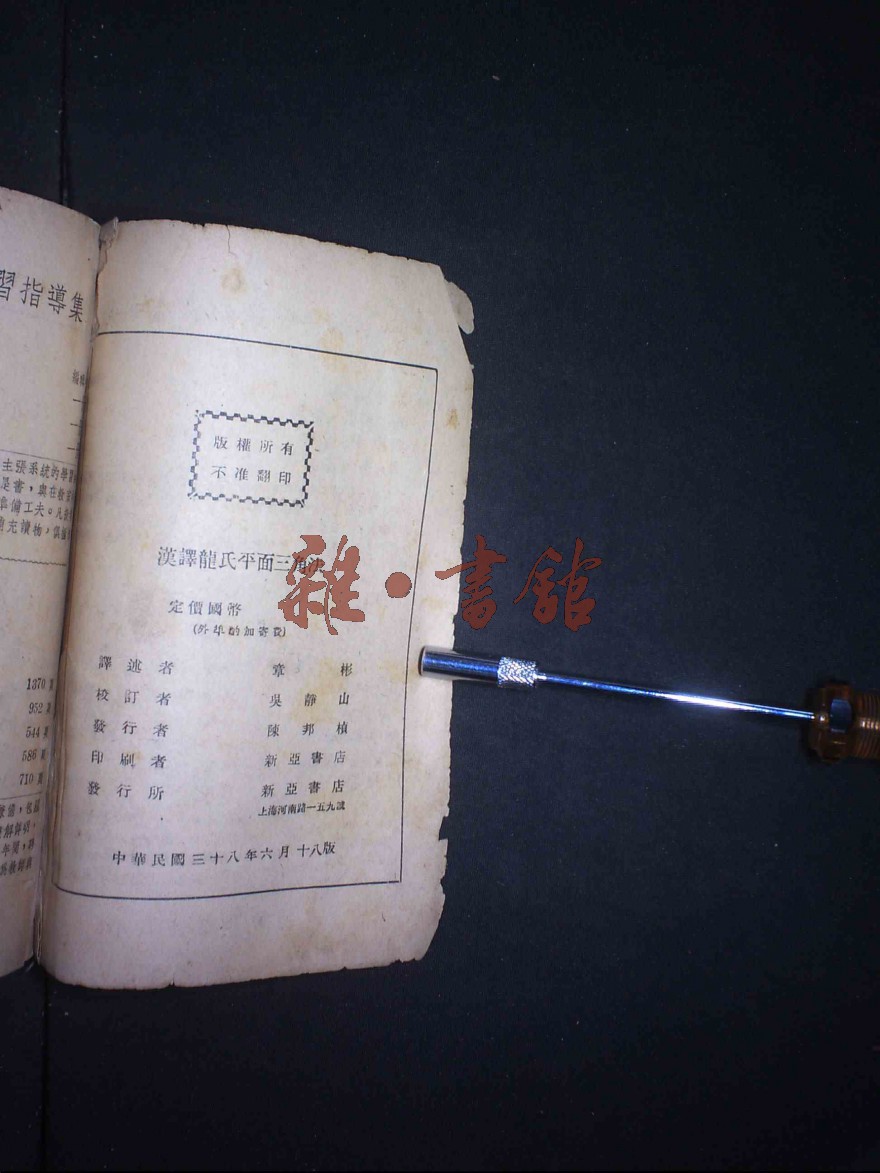 習指導集
主張系統的學
是書，與在
準備工夫。凡
1370
952
544
586
710
版權所有
不准翻印
漢譯龍氏平面三角法
定價國幣
(外埠酌加寄費)
譯述者 章彬
校訂者 吳靜山
發行者 陳邦楨
印刷者 新亞書店
發行所 新亞書店
上海河南路一五九號
中華民國三十八年六月十八版
雜·書館